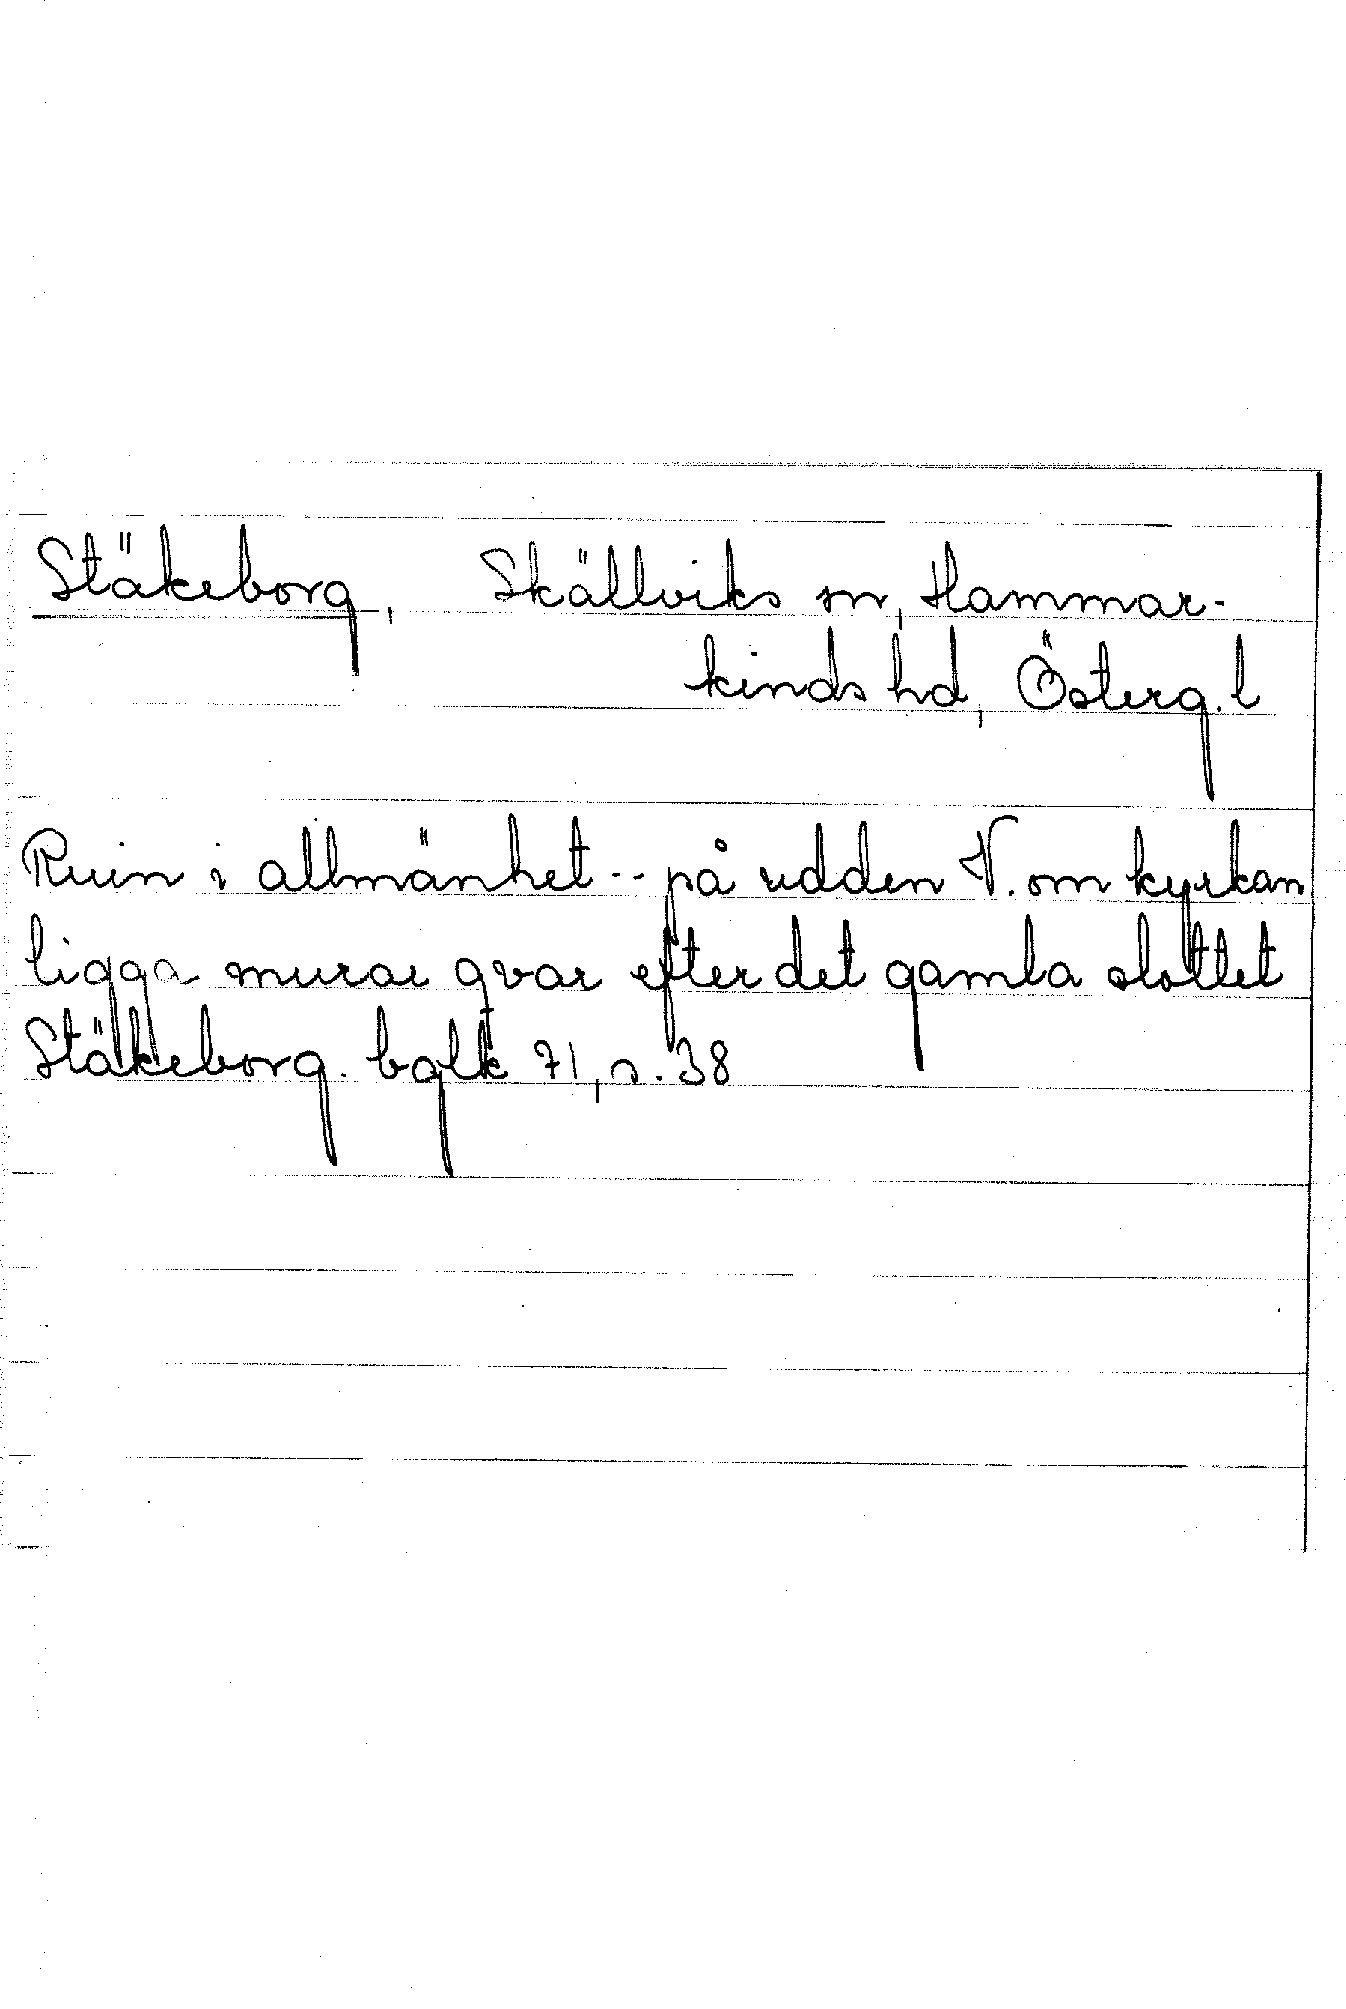 Stäkeborg, Skällviks sn, Hammar-
kinds hd, Österg.l
Ruin i allmänhet -- på udden V. om kyrkan
ligga murar qvar efter det gamla slottet
Stäkeborg. bglk 71, s. 38